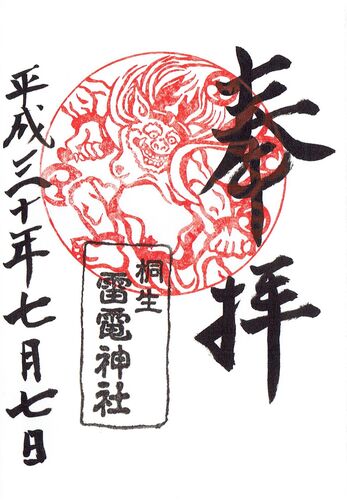 奉拝
桐生
雷電神社
平成三十年七月七日